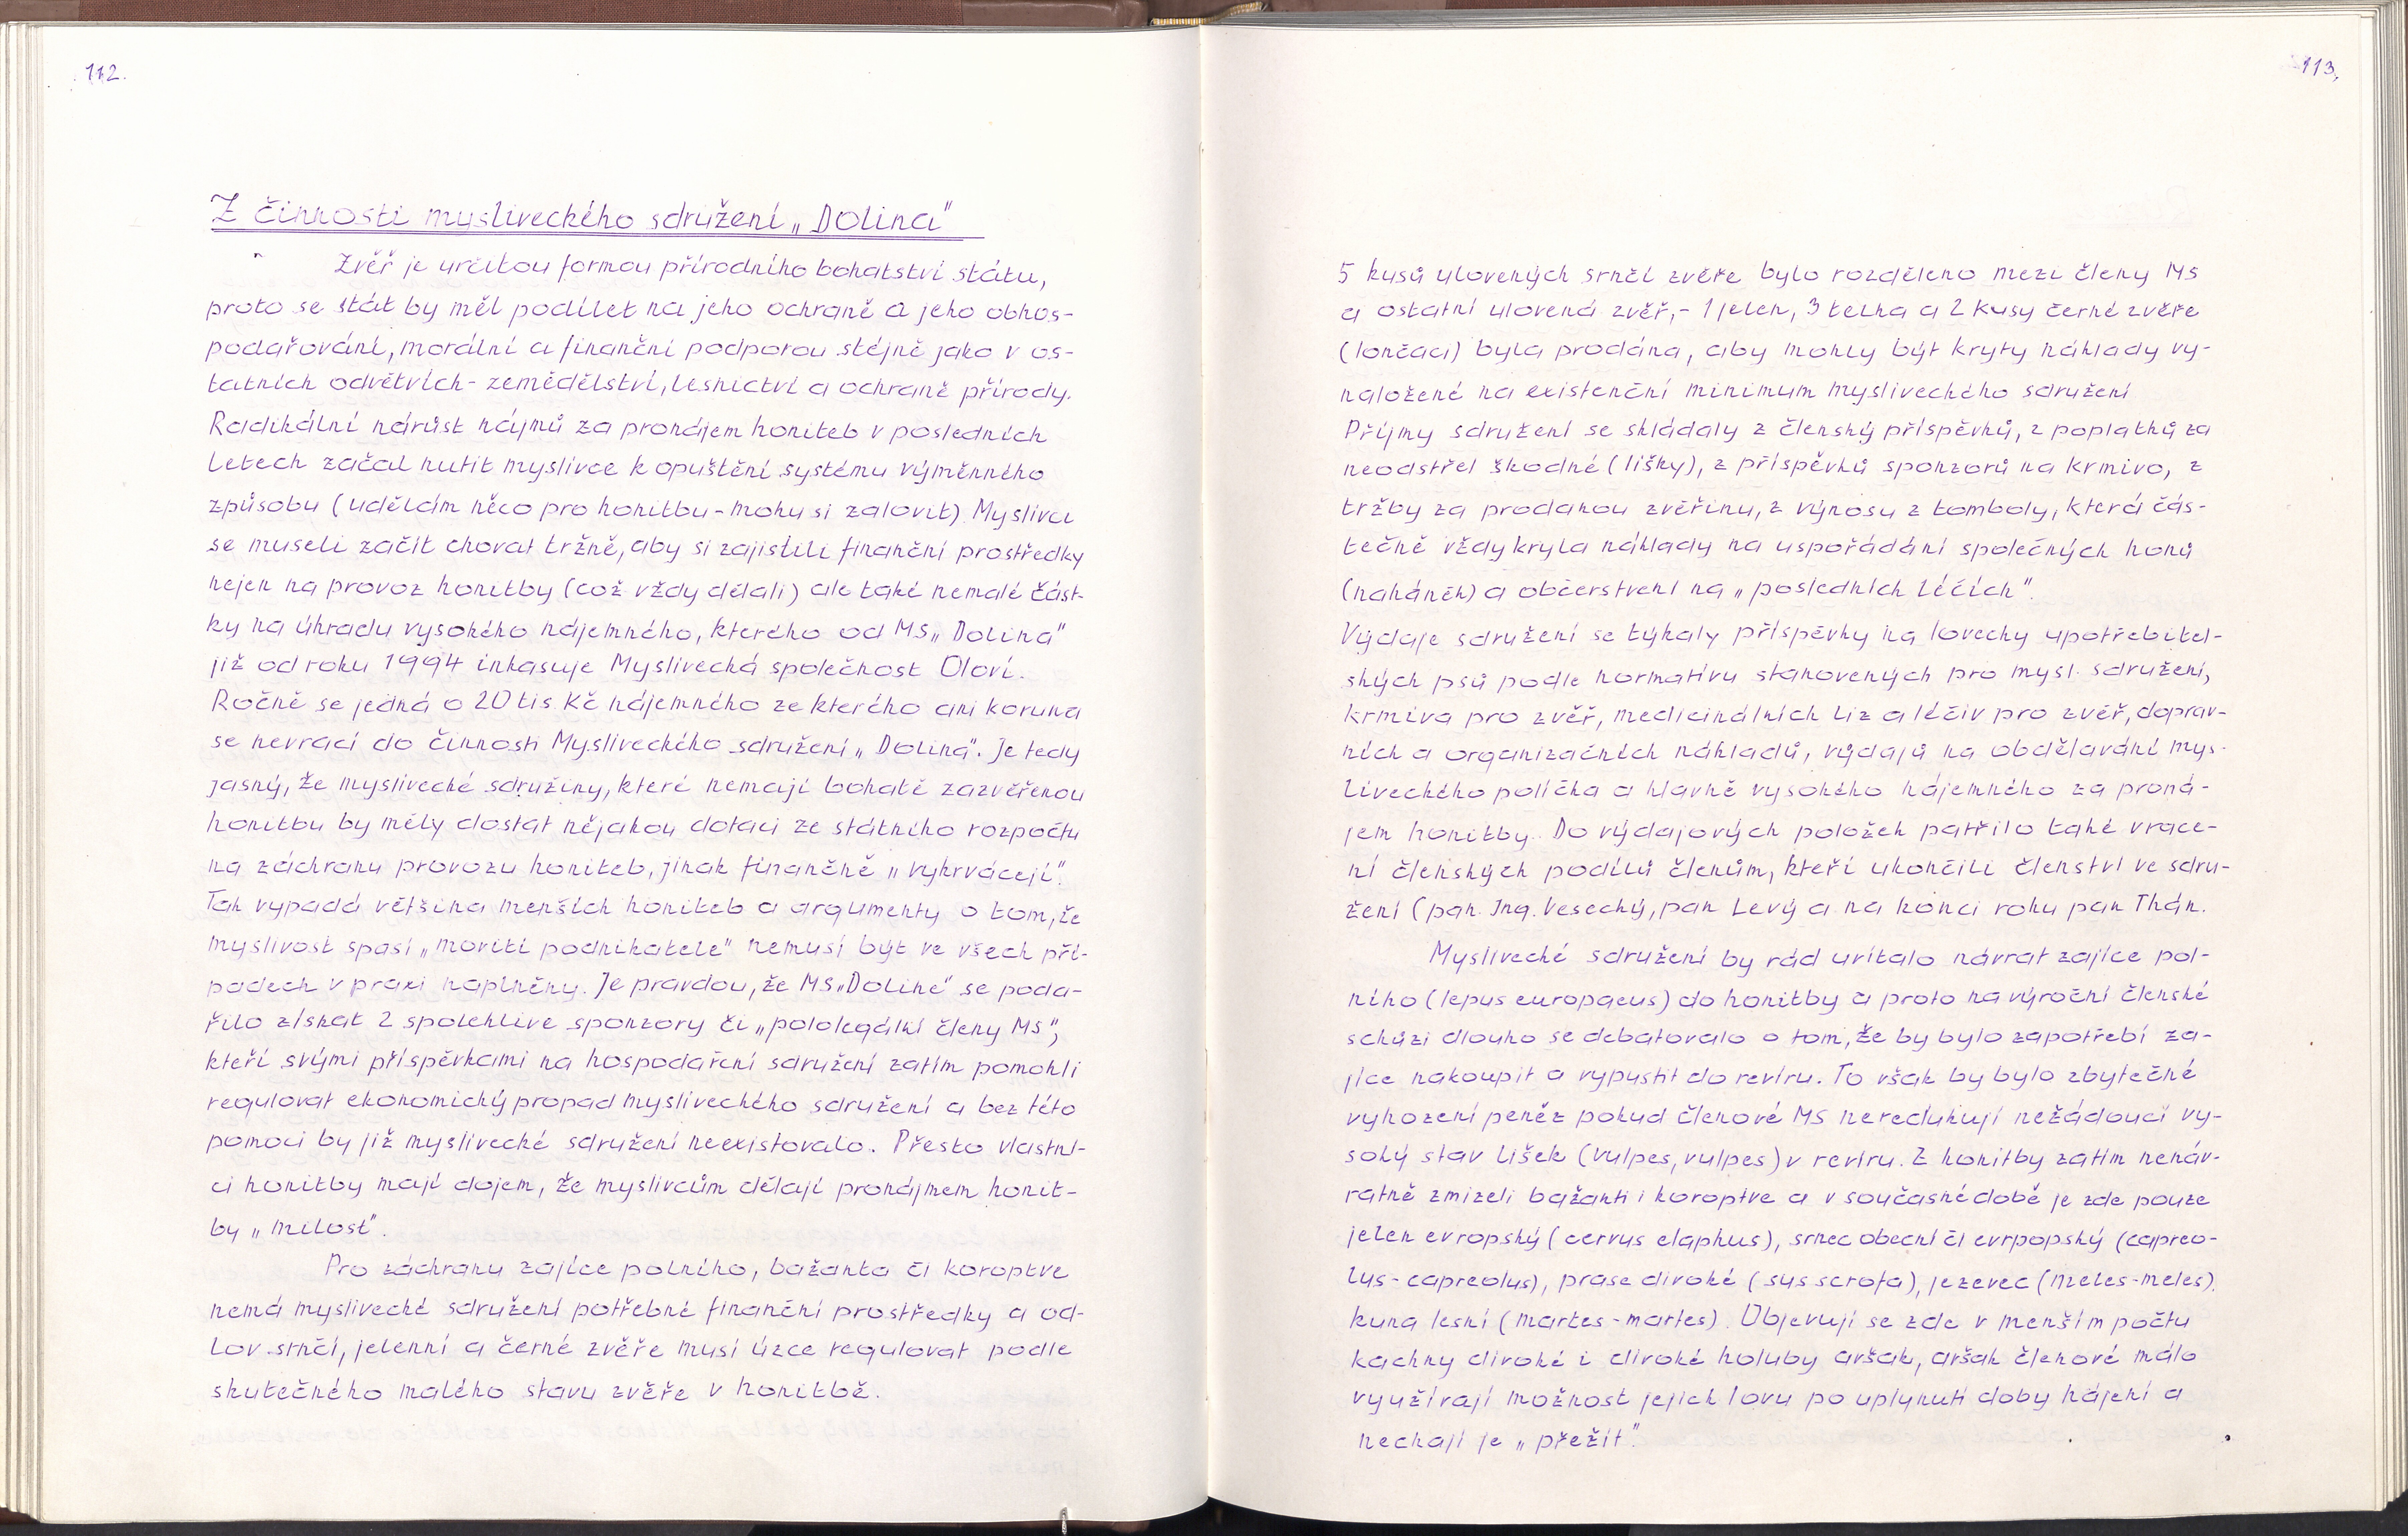 112.
Z činnosti mysliveckého sdružení „Dolina"
Zvěř je určitou formou přírodního bohatství státu,
proto se stát by měl podílet na jeho ochraně a jeho obhos-
podařování, morální a finanční podporou stejně jako v os-
tatních odvětvích - zemědělství, lesnictví a ochraně přírody.
Radikální nárůst nájmů za pronájem honiteb v posledních
letech začal nutit myslivce k opuštění systému výměnného
způsobu (udělám něco pro honitbu - mohu si zalovit). Myslivci
se museli začít chovat tržně, aby si zajistili finanční prostředky
nejen na provoz honitby (což vždy dělali) ale také nemalé část-
ky na úhradu vysokého nájemného, kterého od MS „Dolina"
již od roku 1994 inkasuje Myslivecká společnost Oloví.
Ročně se jedná o 20 tis. Kč nájemného ze kterého ani koruna
se nevrací do činnosti Mysliveckého sdružení „Dolina". Je tedy
jasný, že myslivecké sdružiny, které nemají bohatě zazvěřenou
honitbu by měly dostat nějakou dotaci ze státního rozpočtu
na záchranu provozu honiteb, jinak finančně „vykrvácejí".
Tak vypadá většina menších honiteb a argumenty o tom, že
myslivost spasí „movití podnikatele" nemusí být ve všech pří-
padech v praxi naplněny. Je pravdou, že MS „Dolině" se poda-
řilo získat 2 spolehlive sponzory či „pololegální členy MS",
kteří svými příspěvkami na hospodaření sdružení zatím pomohli
regulovat ekonomický propad mysliveckého sdružení a bez této
pomoci by již myslivecké sdružení neexistovalo. Přesto vlastní-
ci honitby mají dojem, že myslivcům dělají pronájmem honit-
by „milost".
Pro záchranu zajíce polního, bažanta či koroptve
nemá myslivecké sdružení potřebné finanční prostředky a od-
lov srnčí, jelenní a černé zvěře musí úzce regulovat podle
skutečného malého stavu zvěře v honitbě.
113.
5 kusů ulovených srnčí zvěře bylo rozděleno mezi členy MS
a ostatní ulovená zvěř,- 1 jelen, 3 telha a 2 kusy černé zvěře
(lončáci) byla prodána, aby mohly být kryty náklady vy-
naložené na existenční minimum mysliveckého sdružení
Příjmy sdružení se skládaly z členský příspěvků, z poplatků za
neodstřel škodné (lišky), z příspěvků sponzorů na krmivo, z
tržby za prodanou zvěřinu, z výnosu z tomboly, která čás-
tečně vždy kryla náklady na uspořádání společných honů
(naháněk) a občerstvení na „posledních léčích".
Výdaje sdružení se týkaly příspěvky na lovecky upotřebitel-
ských psů podle normativu stanovených pro mysl. sdružení,
krmiva pro zvěř, medicinálních liz a léčiv pro zvěř, doprav-
ních a organizačních nákladů, výdajů na obdělavání mys-
liveckého políčka a hlavně vysokého nájemného za proná-
jem honitby. Do výdajových položek patřilo také vrace-
ní členských podílů členům, kteří ukončili členství ve sdru-
žení (pan Ing. Vesecký, pan Levý a na konci roku pan Thán.
Myslivecké sdružení by rád uvítalo návrat zajíce pol-
ního (lepus europaeus) do honitby a proto na výroční členské
schůzi dlouho se debatovalo o tom, že by bylo zapotřebí za-
jíce nakoupit a vypustit do revíru. To však by bylo zbytečné
vyhození peněz pokud členové MS neredukují nežádoucí vy-
soký stav lišek (vulpes, vulpes) v revíru. Z honitby zatím nenáv-
ratně zmizeli bažanti i koroptve a v současné době je zde pouze
jelen evropský (cervus elaphus), srnec obecní či evrpopský (capreo-
lus - capreolus), prase divoké (sys scrofa), jezevec (meles - meles),
kuna lesní (martes - martes). Objevují se zde v menším počtu
kachny divoké i divoké holuby avšak, avšak členové málo
využívají možnost jejich lovu po uplynutí doby hájení a
nechají je „přežít".